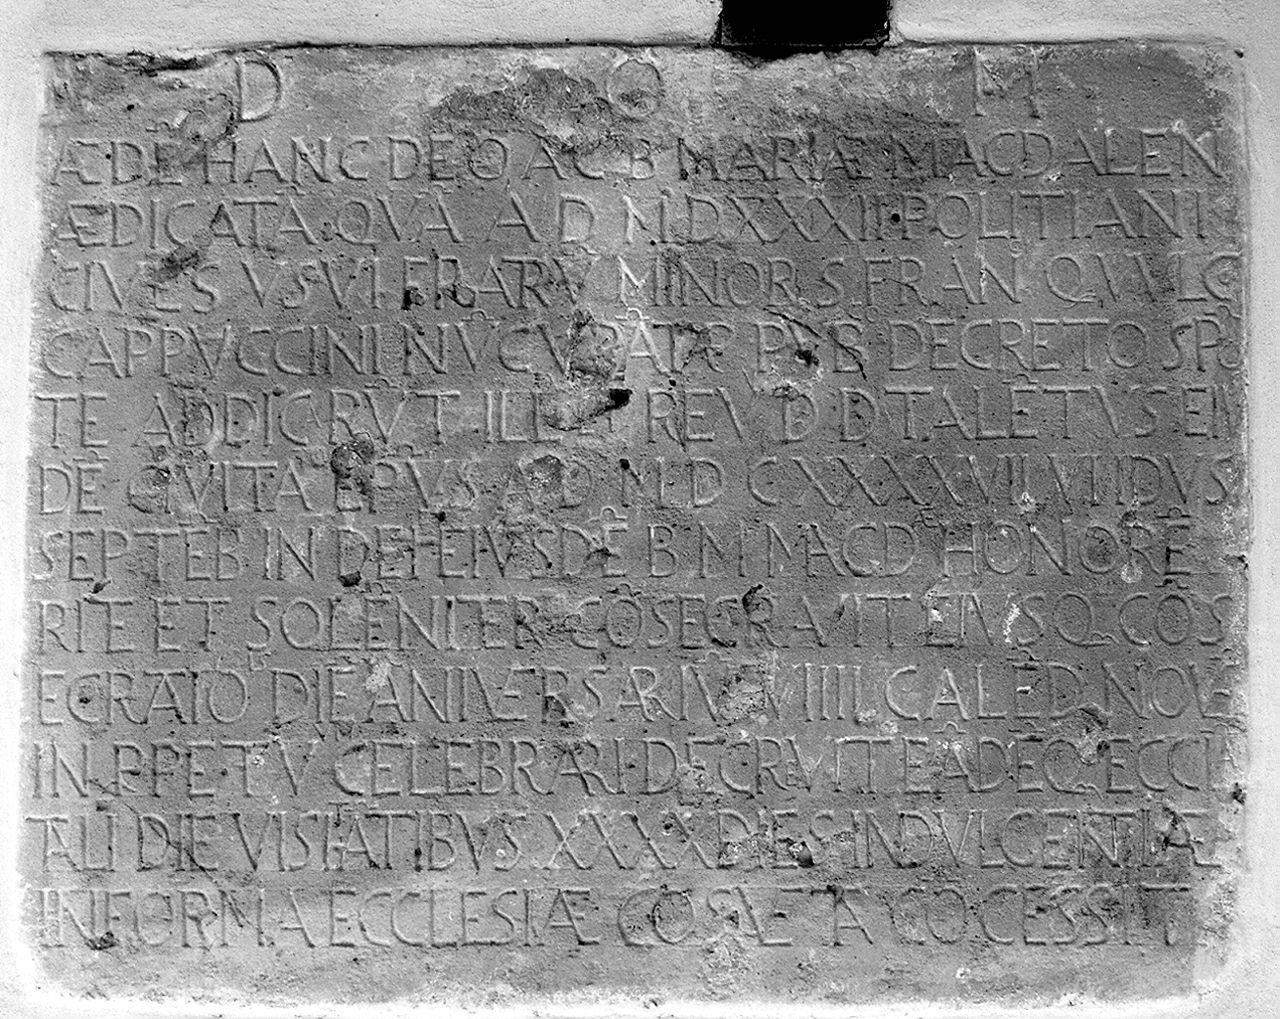 D O M
ÆDE HANC DEO AC B MARIÆ MAGDALEN
ÆDICATĀ QVĀ A D MDXXXII POLITIANI
CIVES VSVI FRARV MINOR S FRAN QVVLG
CAPPVCCINI NVCVPĀT PVB DECRETO SPŌ
TE ADDICRVT ILL REV D D TALĒTVS EIV
DĒ QVITA EPVS A D M D CXXXXVII VIII DVS
SEPTEB IN DEI EIVSDĒ B M MAGD HONORĒ
RITE ET SOLENITER COSECRAVIT EIVSQ COS
ECRATO DIE ANIVERSARIV VIIII CAL ED NOVE
IN PPETV CELEBRARI DECRVIT EĀDEQ ECCLĀ
TALI DIE VISITATIBVS XXXX DIES INDVLGENTIÆ
IN FORMA ECCLESIÆ COSVETA COCESSIT